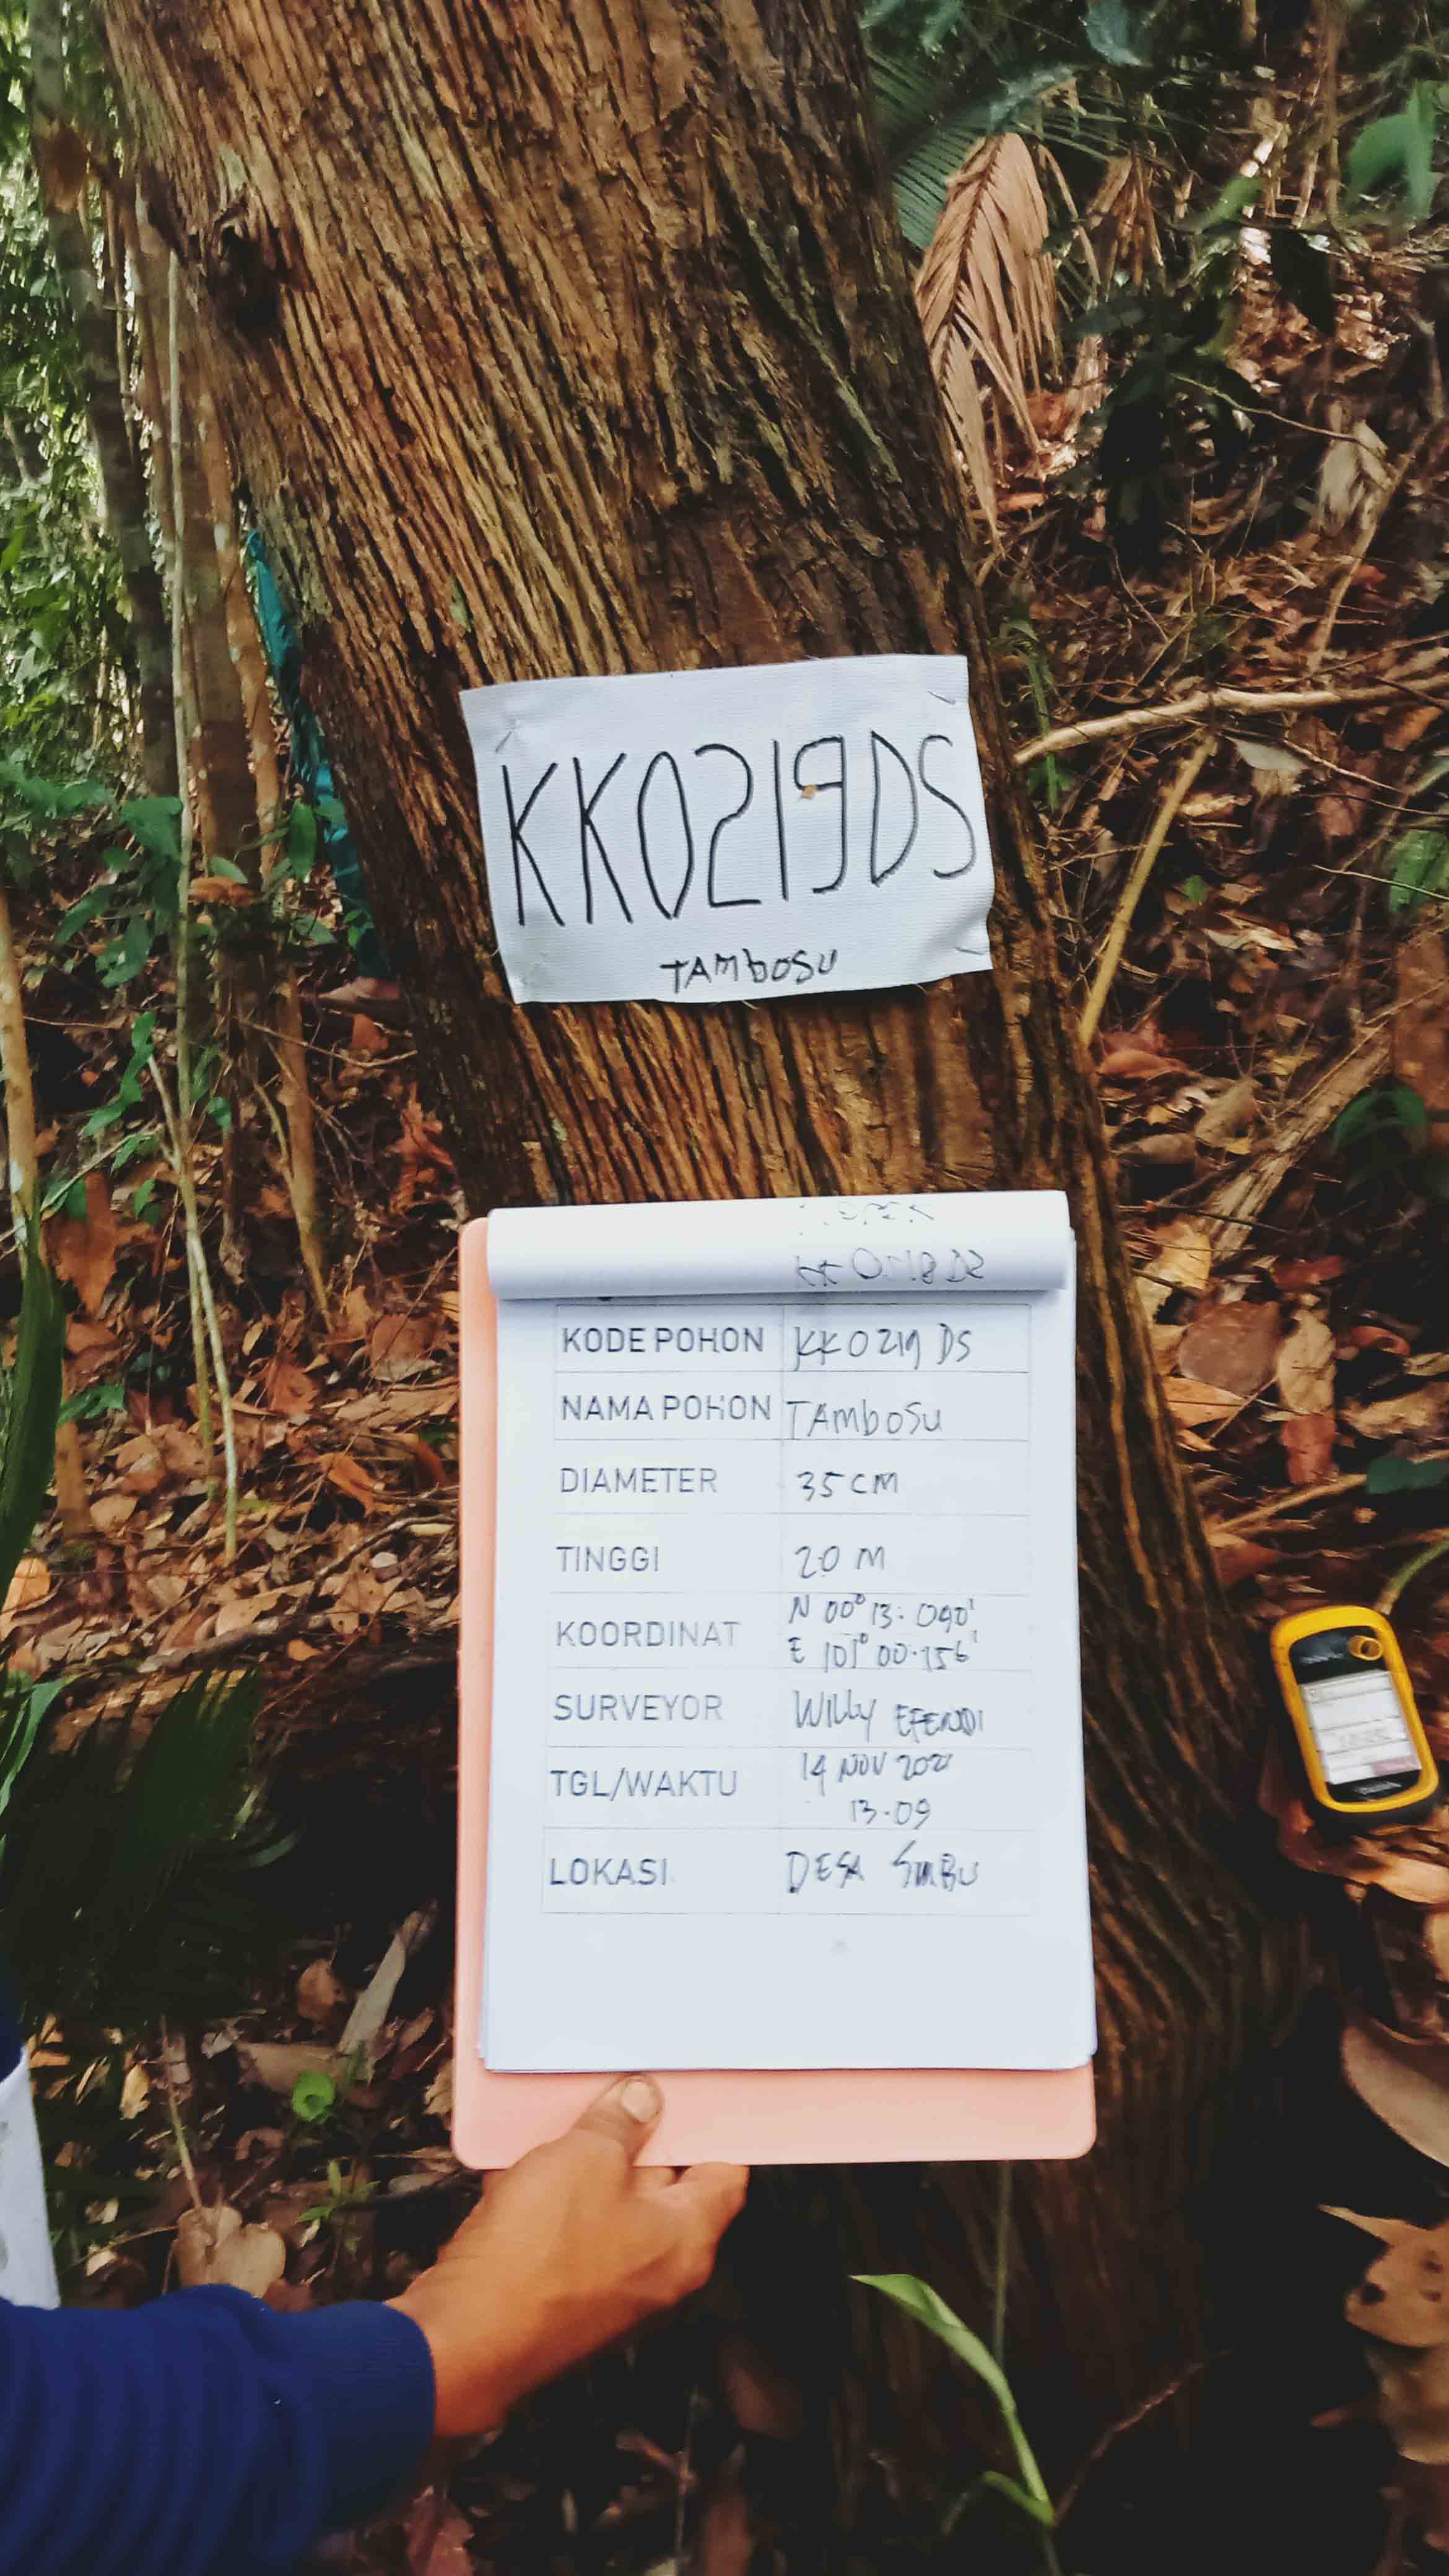 KK0219DS
TAMbOSU
KODE POHON KK0219 DS
NAMA POHON TAMbOSU
DIAMETER 35 CM
TINGGI 20 M
KOORDINAT N 00° 13. 090'
E 101° 00.156'
SURVEYOR WILLY EFENDI
TGL/WAKTU 14 NOV 2021
13.09
LOKASI DESA